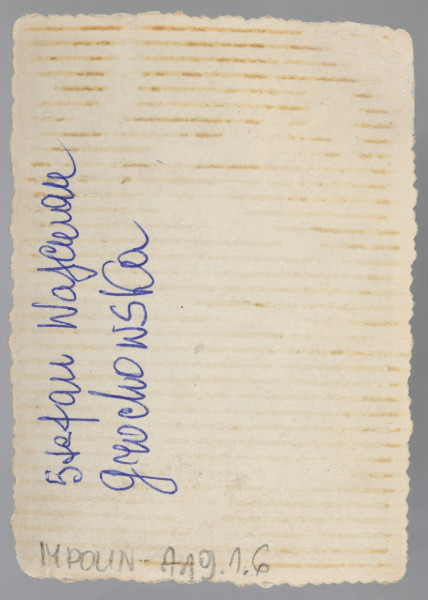 Stefan Wajcman
Grochowska
MPOLIN-A19.1.6